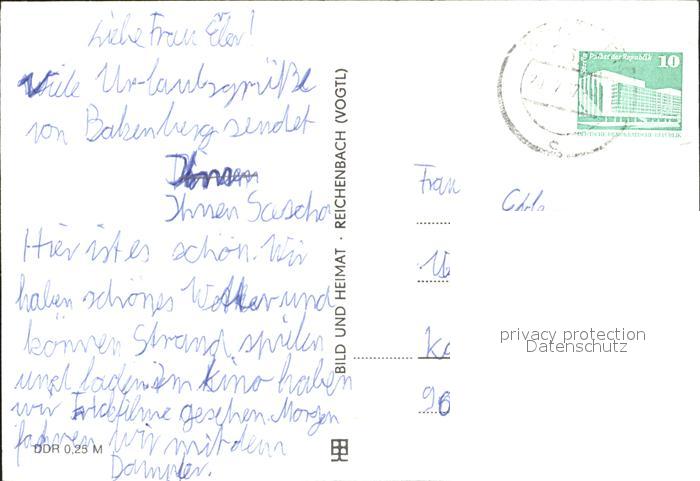 Liebe Frau Eler!
Viele Urlaubsgrüße
von Bakenberg sendet
Ihnen
Ihnen Sascha
Hier ist es schön. Wir
haben schönes Wetter und
können Strand spielen
und baden. Im Kino haben
wir Trickfilme gesehen. Morgen
fahren wir mit dem
Dampfer.
DDR 0,25 M
BILD UND HEIMAT · REICHENBACH (VOGTL)
Palast der Republik
10
DEUTSCHE DEMOKRATISCHE REPUBLIK
Frau
96
privacy protection
Datenschutz